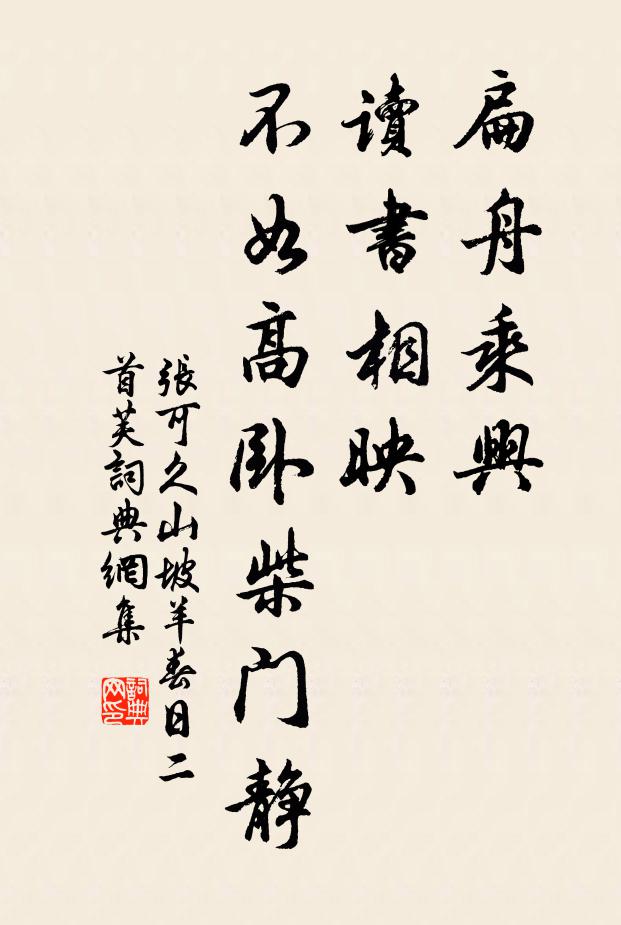 扁舟乘興
讀書相映
不如高臥柴門靜
張可久山坡羊春日二
首芙詞典網集
詞典
网印